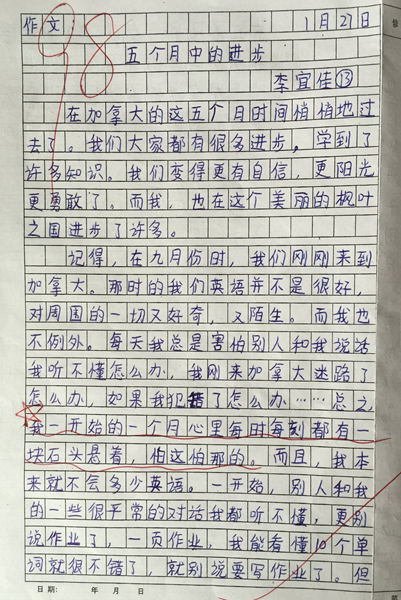 作文 98 1月27日
五个月中的进步
李宜佳⑬
在加拿大的这五个月时间悄悄地过
去了。我们大家都有很多进步。学到了
许多知识。我们变得更有自信，更阳光
更勇敢了。而我，也在这个美丽的枫叶
之国进步了许多。
记得，在九月份时，我们刚刚来到
加拿大。那时的我们英语并不是很好，
对周围的一切又好奇，又陌生。而我也
不例外。每天我总是害怕别人和我说话
我听不懂怎么办，我刚来加拿大迷路了
怎么办，如果我犯错了怎么办……总之，
我一开始的一个月心里每时每刻都有一
块石头悬着，怕这怕那的。而且，我本
来就不会多少英语。一开始，别人和我
的一些很平常的对话我都听不懂，更别
说作业了，一页作业，我能看懂10个单
词就很不错了，就别说要写作业了。但
日期： 年 月 日